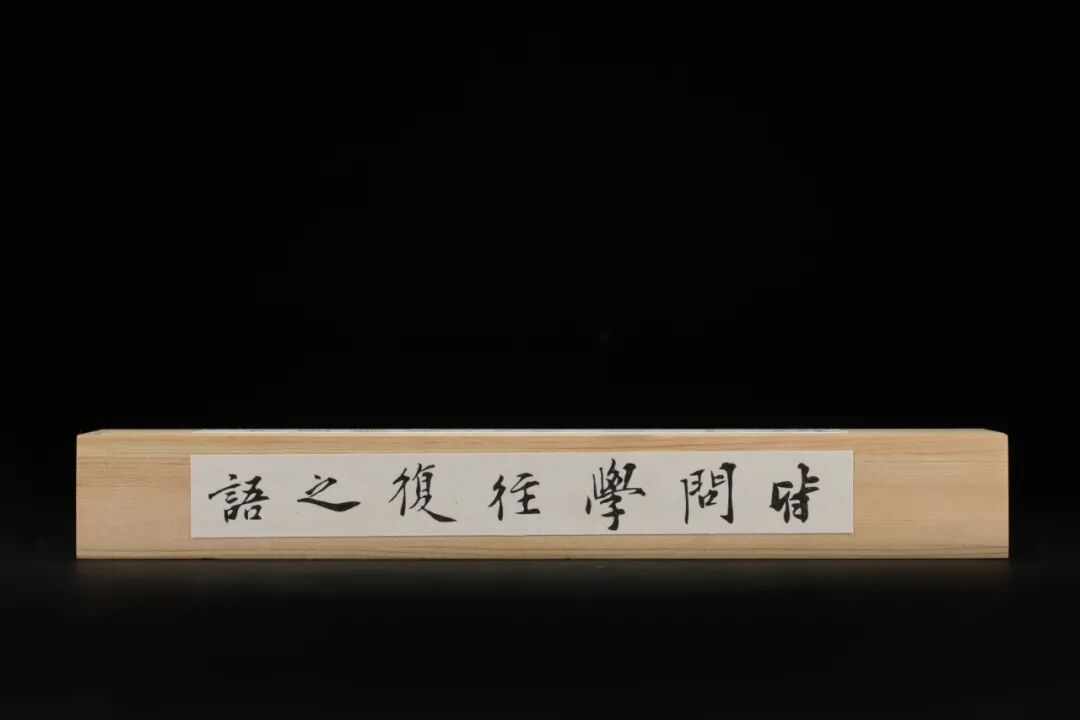 時問學往復之語